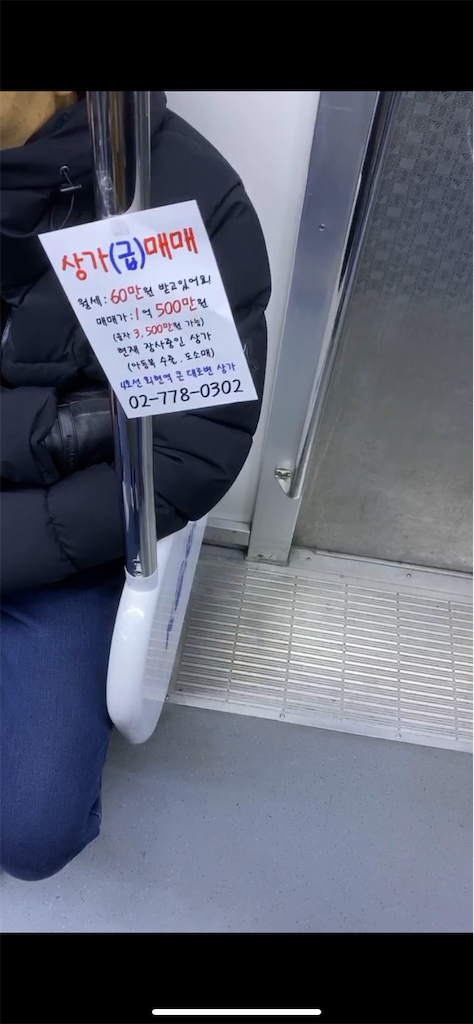 상가(급)매매
월세 : 60만원 받고있어요!
매매가 : 1억 500만원
(융자 3,500만원 가능)
현재 장사중인 상가
(아동복 수출, 도소매)
4호선 회현역 큰 대로변 상가
02-778-0302